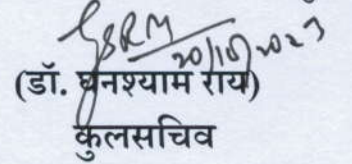 GSRM
20/10/2023
(डॉ. घनश्याम राय)
कुलसचिव